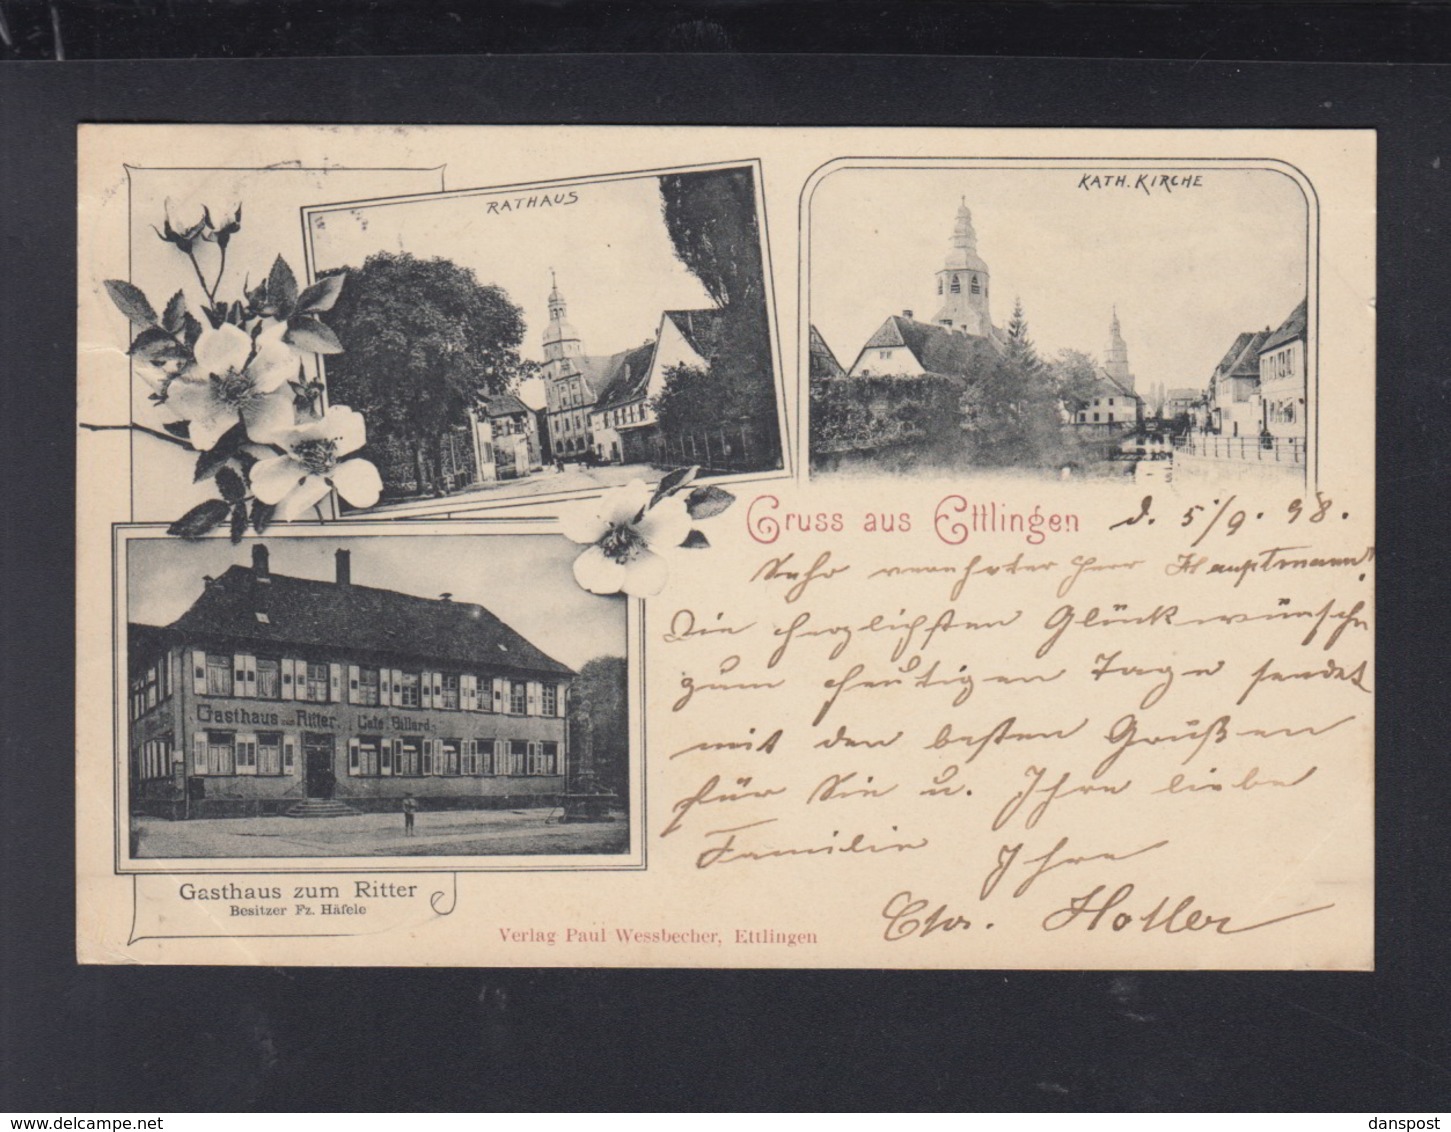 RATHAUS
KATH. KIRCHE
Gruss aus Ettlingen d. 5/9. 98.
Sehr verehrter Herr Hauptmann!
Die herzlichsten Glückwünsche
zum heutigen Tage sendet
mit den besten Grüßen
für Sie u. Ihre liebe
Familie Ihr
Chr. Holler
Gasthaus zum Ritter. Café Billard.
Gasthaus zum Ritter
Besitzer Fz. Häfele
Verlag Paul Wessbecher, Ettlingen
www.delcampe.net
danspost